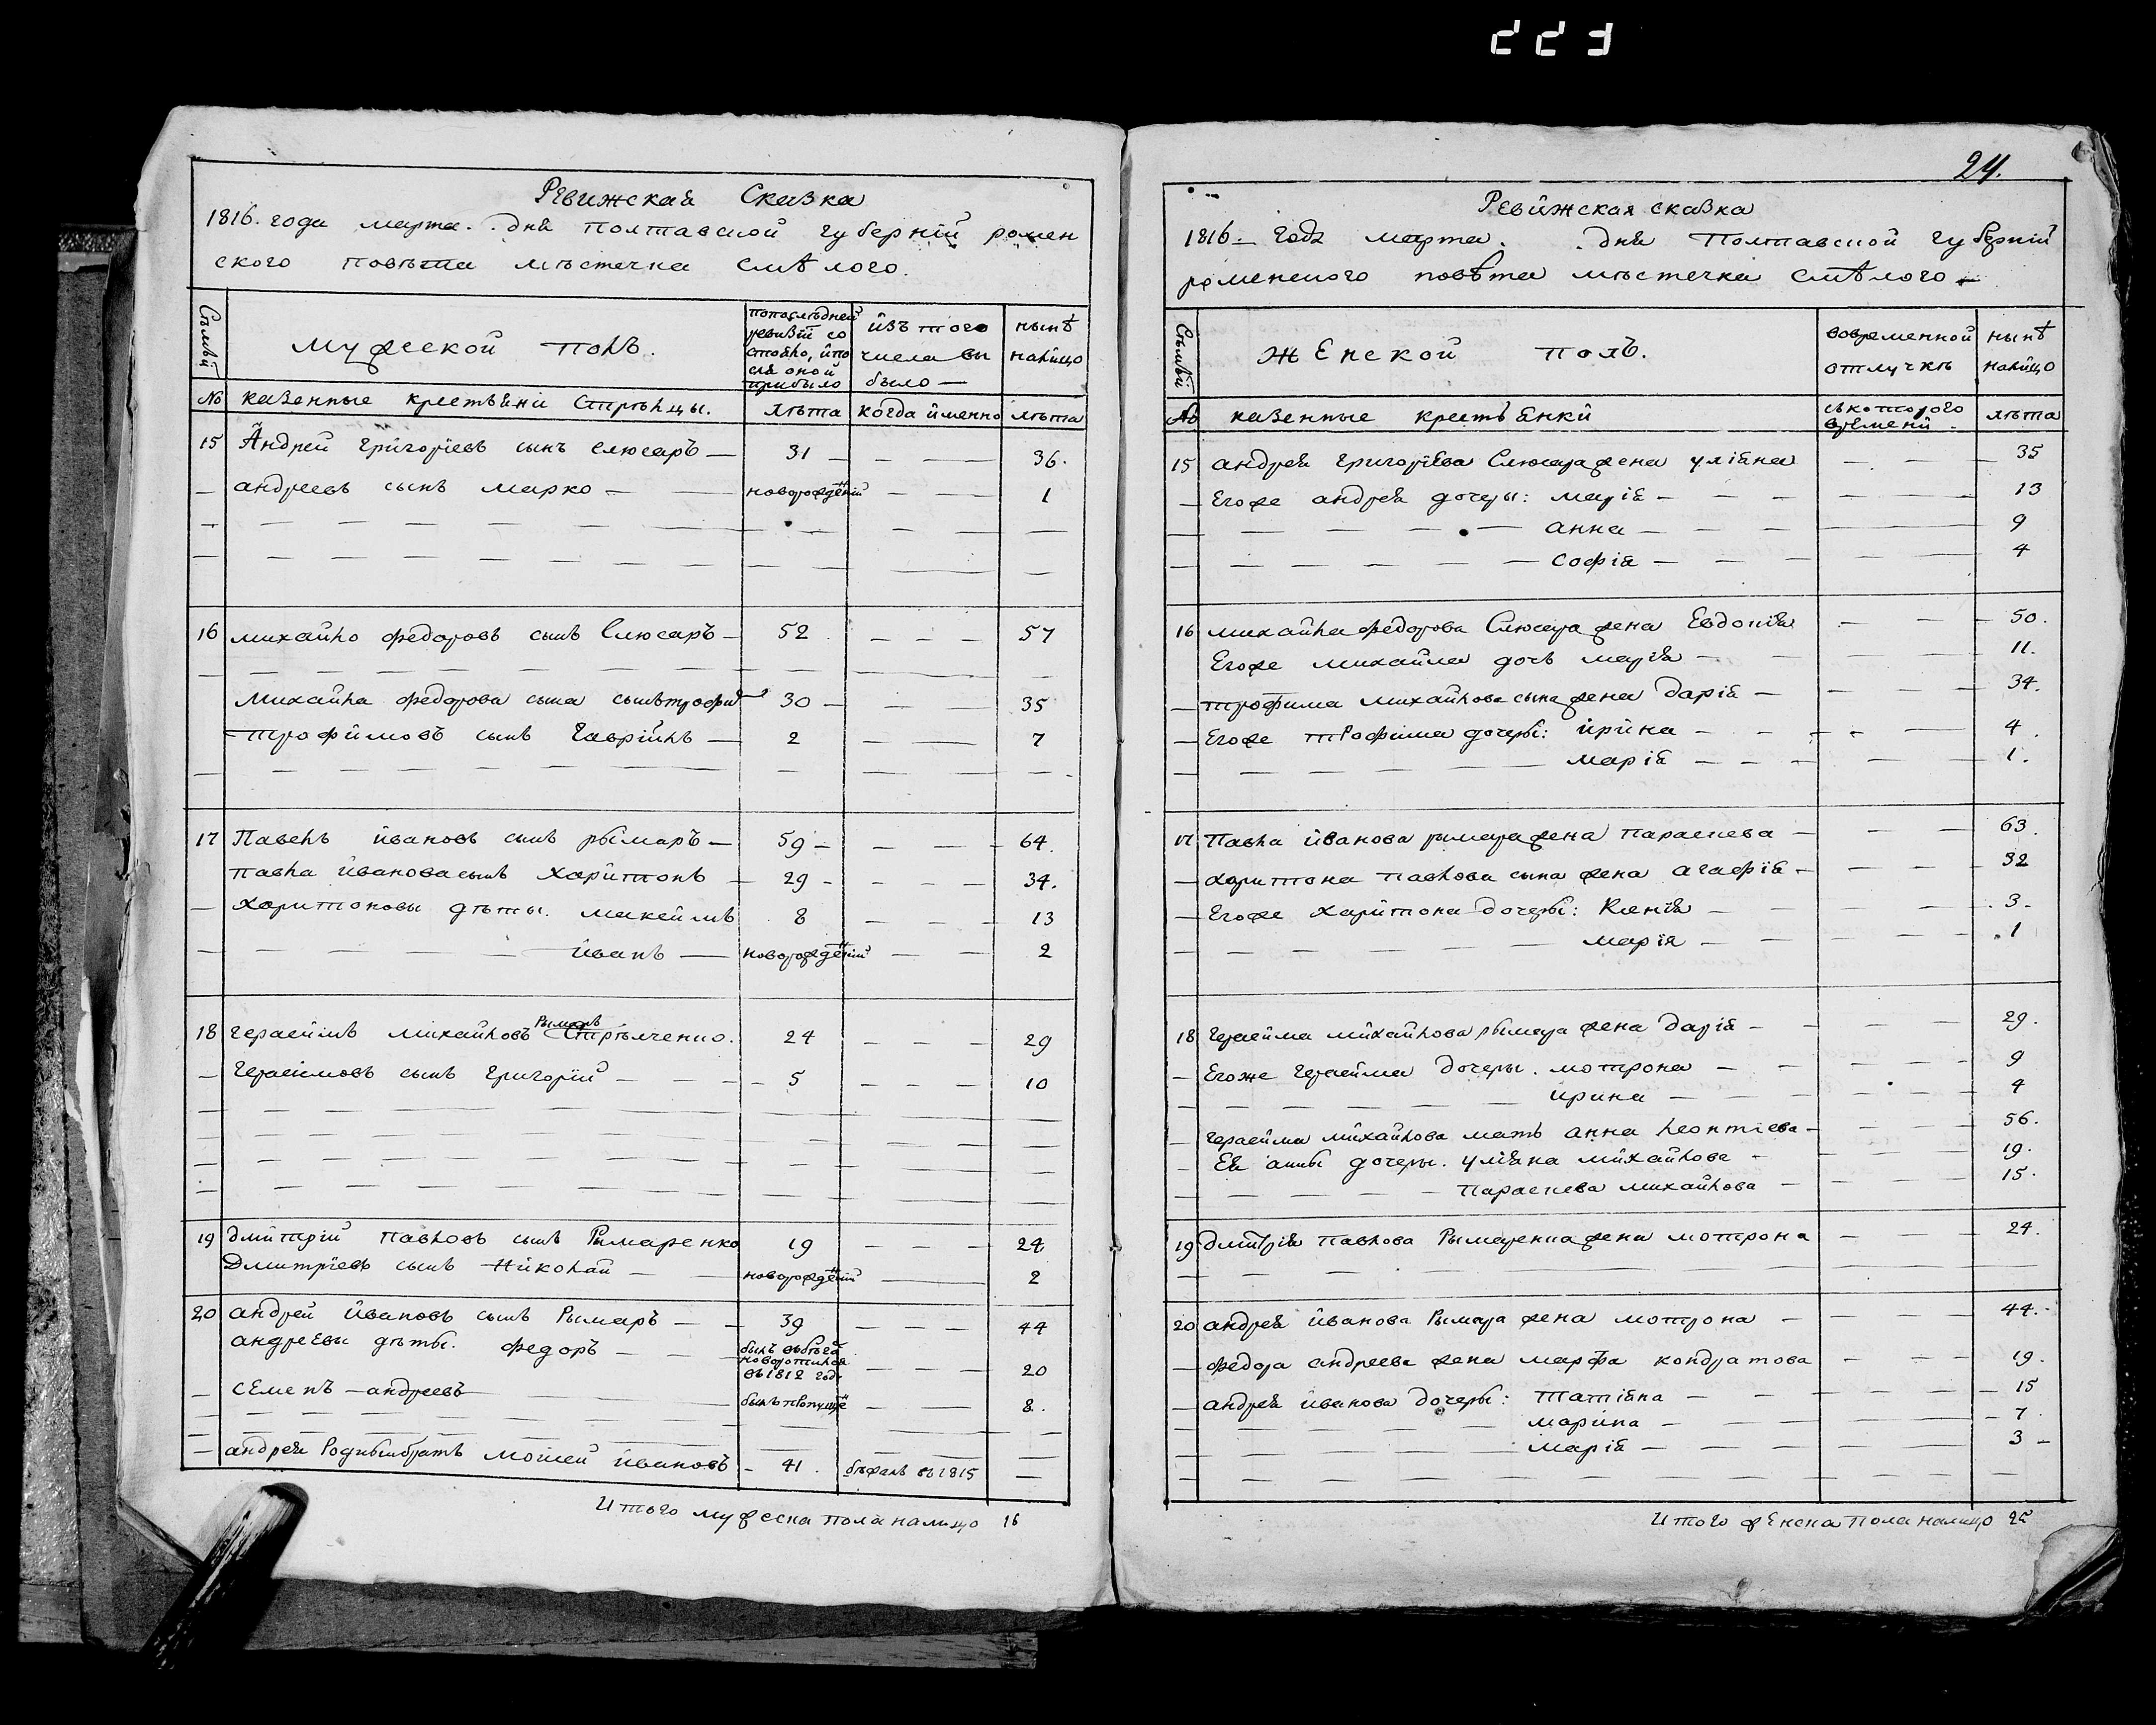 223
Ревижская Сказка
1816. года марта. . дня Полтавской губерній ромен
ского повѣта мѣстечка Смѣлого.
Сѣмьи
мужеской полъ.
попослѣдней ревизій состояло, ипосля оной прибыло
изъ того числа выбыло —
нынѣ налицо
№ казенные крестьяни Стрѣлцы. лѣта когда именно лѣта
15 Андрей Григоріевъ сынъ Слюсаръ — 31 — 36.
— андреевъ сынъ марко — новорожденій 1
16 михайло федоровъ сынъ Слюсаръ — 52 57
Михайла федорова сына сынъ трофим 30 — 35
трофимовъ сынъ Гаврійлъ — 2 7
17 Павелъ ивановъ сынъ рымаръ — 59 — 64.
павла иванова сынъ харитонъ — 29 — 34.
— харитоновы дѣты. макеимъ 8 13
иванъ — новорожденій 2
18 герасимъ михайловъ Рымаръ Стрѣлченко. 24 29
— герасимовъ сынъ григорій — 5 10
19 дмитрій павловъ сынъ Рымаренко 19 24
Дмитріевъ сынъ Николай — новорожденій 2
20 андрей ивановъ сынъ Рымаръ — 39 44
андреевы дѣты. федоръ — билъ вбѣгах новоротился въ 1812 годе 20
— семенъ — андреевъ былъ пропущё 8.
— андрея Родныйбратъ мойсей ивановъ — 41. бѣжалъ въ 1815 —
Итого мужеска пола налицо 16
24.
Ревижская сказка
1816. года марта. . дня Полтавской губерній
роменского повѣта мѣстечка Смѣлого —
Сѣмьи
женской полъ.
вовременной отлучкѣ
нынѣ налицо
№ казенные крестьянки съкоторого времени. лѣта
15 андрея григоріева Слюсара жена уліяна 35
— Егоже андрея дочеры: марія — 13
анна — 9
софія — 4
16 михайла федорова Слюсара жена Евдокія 50.
Егоже михайла дочь марія — 11.
— трофима михайлова сына жена дарія — 34.
— Егоже трофима дочеры: ирина — 4.
марія — 1.
17 Павла иванова рымара жена параскева — 63.
— харитона павлова сына жена агафія — 32
— Егоже харитона дочеры: Ксенія — 3.
марія — 1
18 герасима михайлова рымара жена дарія — 29.
— Егоже герасима дочеры. мотрона — 9
ирина — 4
— герасима михайлова мать анна леонтіева — 56.
— Ея анны дочеры. уліяна михайлова — 19.
параскева михайлова — 15.
19 дмитрія павлова Рымаренка жена мотрона 24.
20 андрея иванова Рымара жена мотрона — 44.
— федора андреева жена марфа кондратова 19.
— андрея иванова дочеры: татіяна — 15
марина — 7
марія — 3
Итого женска пола налицо 25